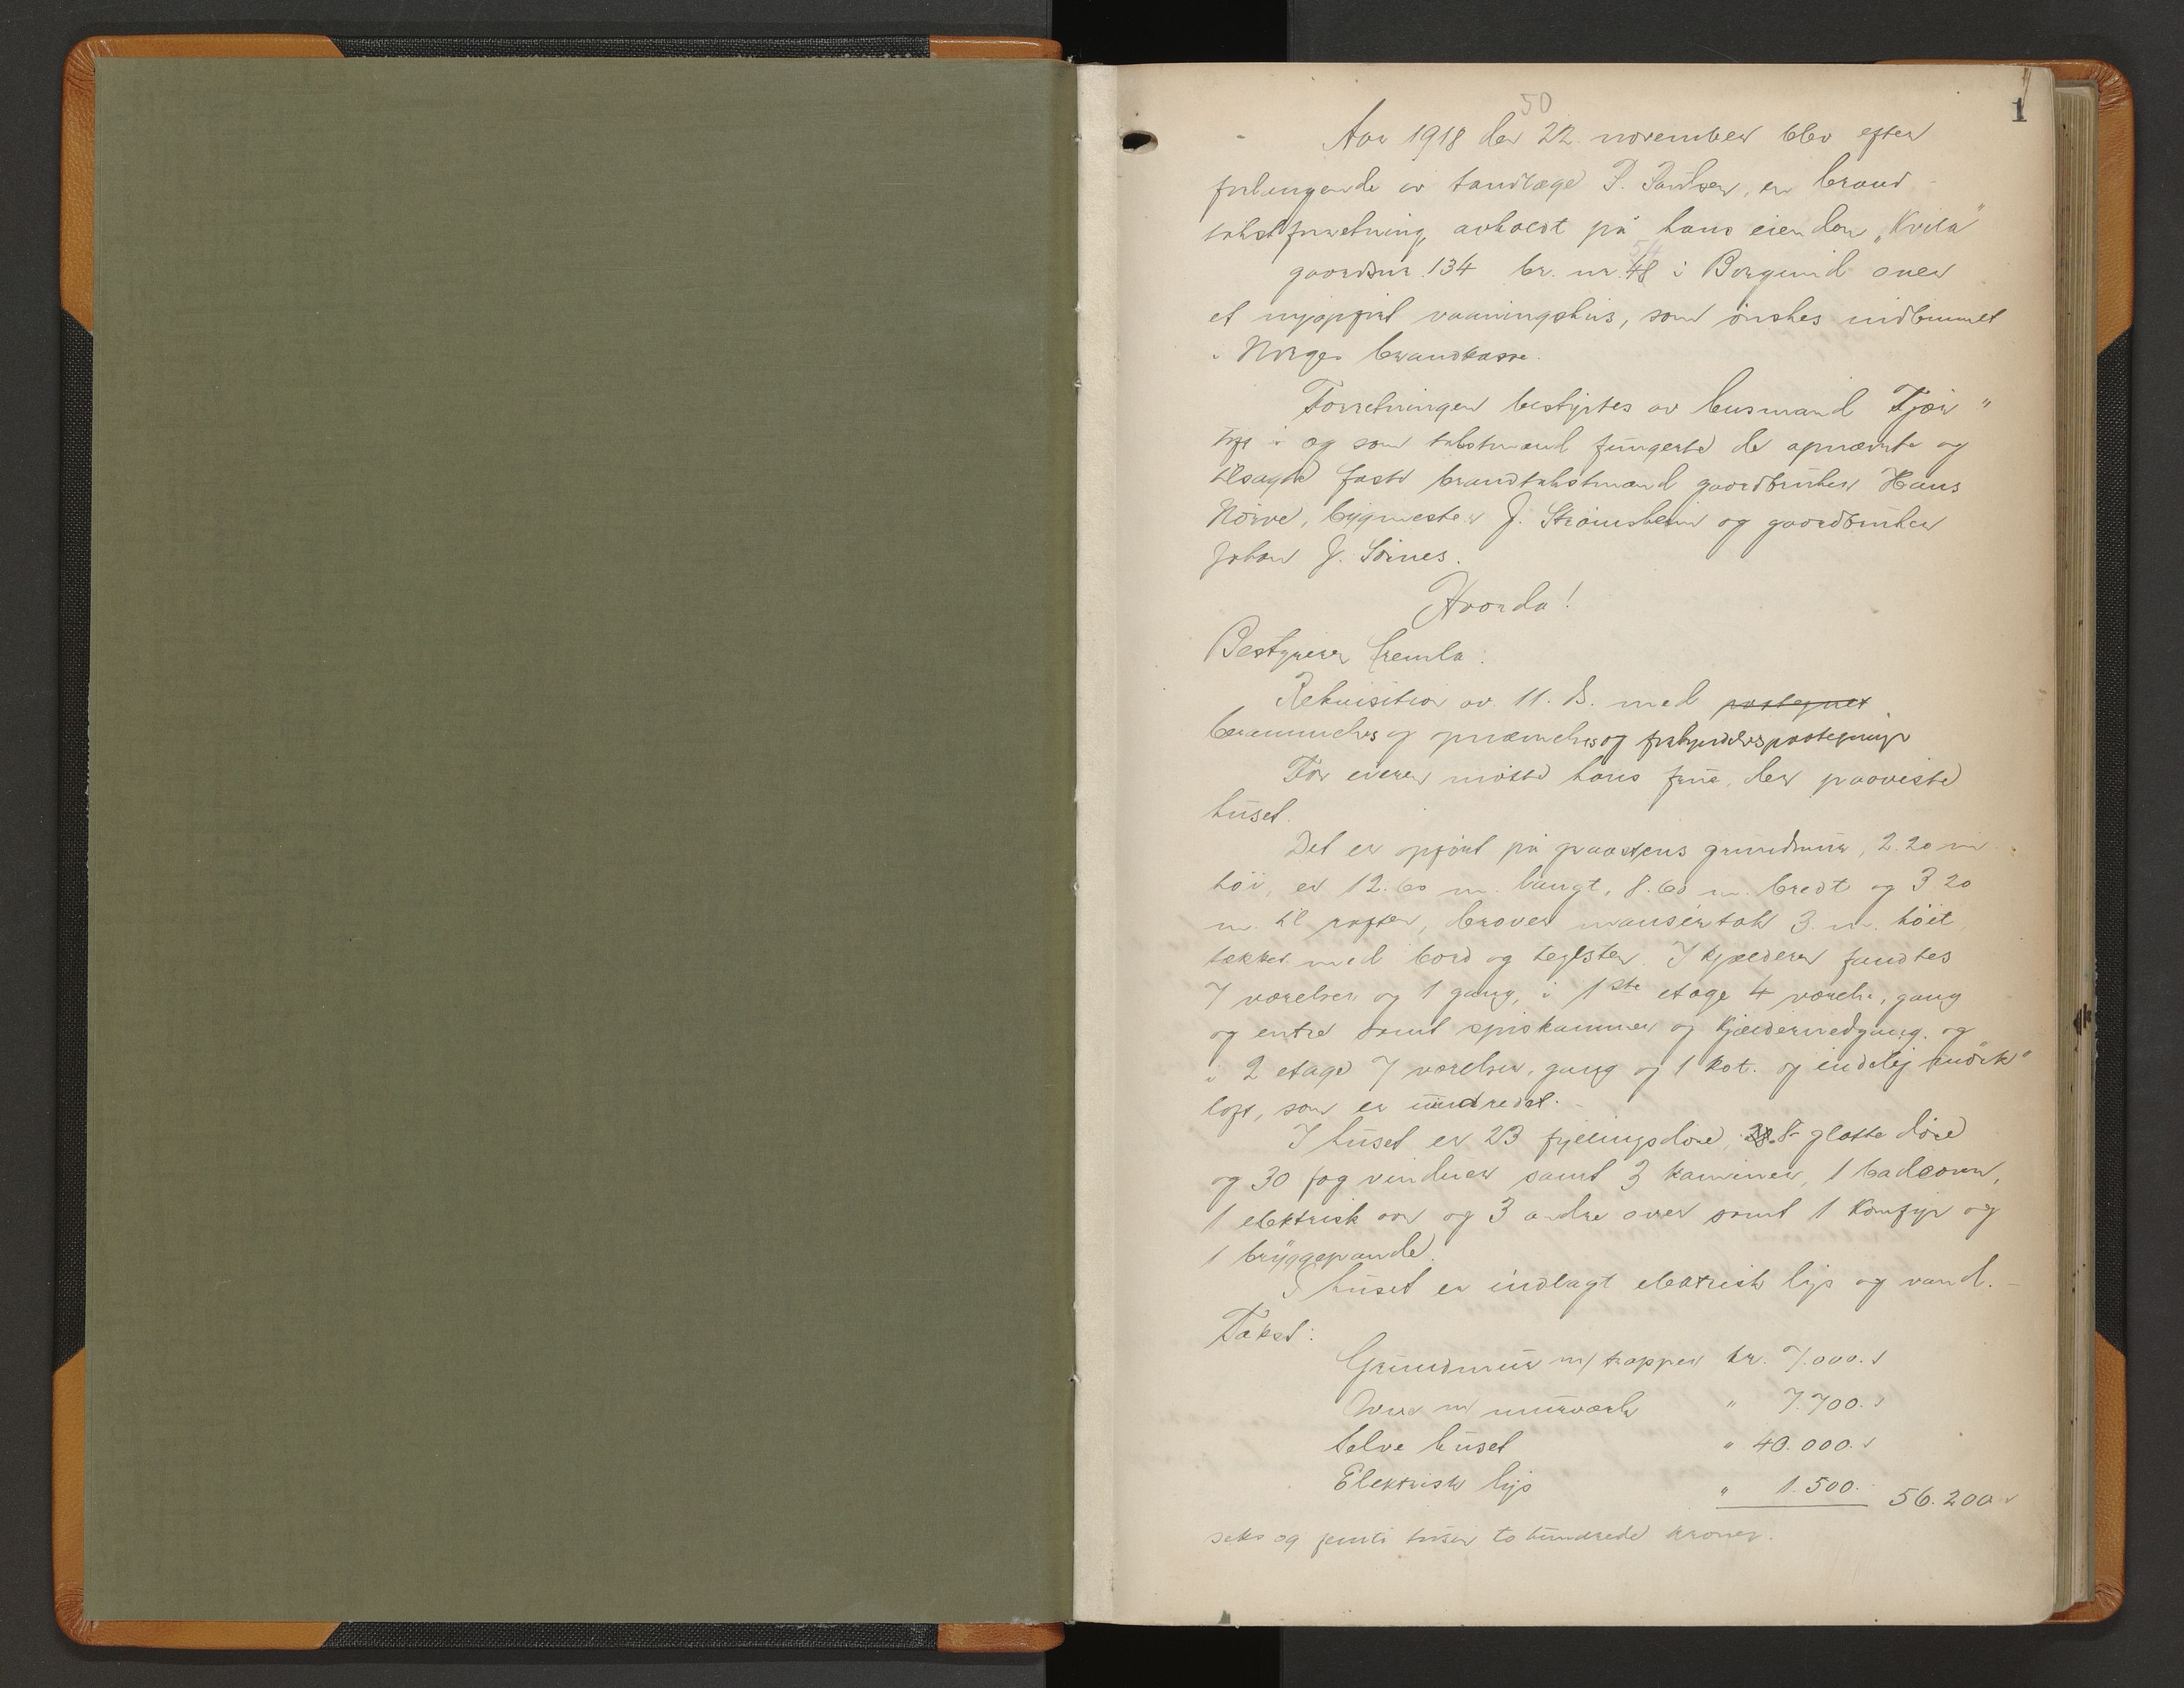 50
1
Aar 1918 den 22 november blev efter
forlangende av tandlæge P. Paulsen, en brand-
takstforretning avholdt på hans eiendom „Kvila"
54
gaardsnr. 134 br. nr. 48 i Borgund over
et nyopført vaaningshus, som ønskes indlemmet
i Norges brandkasse.
Forretningen bestyrtes av lensmand Tjør"
tofts og som takstmænd fungerte de opnævnte og
tilsagte faste brandtakstmænd gaardbruker Hans
Nørve, bygmester J. Strømsheim og gaardbruker
Johan J. Søvnes.
Hvorda!
Bestyreren fremla:
Rekvisition av 11. ds. med paategnet
berammelses og opnævnelses og forkyndelsespaategninger
For eieren møtte hans frue, der paaviste
huset.
Det er opført på graastens grundmur, 2.20 m
høi, er 12.60 m. langt, 8.60 m. bredt og 3 20
m. til raften, herover mansértak 3. m. høit
takket med bord og teglsten. I kjælderen fandtes
7 værelser og 1 gang, i 1ste etage 4 værelser, gang
og entre samt spiskammer og kjældernedgang, og
i 2 etage 7 værelser, gang og 1 kot. og endelig mørk"
loft, som er uindredet. -
I huset er 23 fyllingsdøre, 8 glatte døre
og 30 fag vinduer samt 3 kaminer, 1 badeovn,
1 elektrisk ovn og 3 andre ovner samt 1 komfyr og
1 bryggepande.
I huset er indlagt elektrisk lys og vand. -
Takst:
Grundmur m/ trapper kr. 7.000.
Ovne m/ murværk " 7.700.
Selve huset " 40.000.
Elektrisk lys " 1.500. 56.200
seks og femti tusen to hundrede kroner.